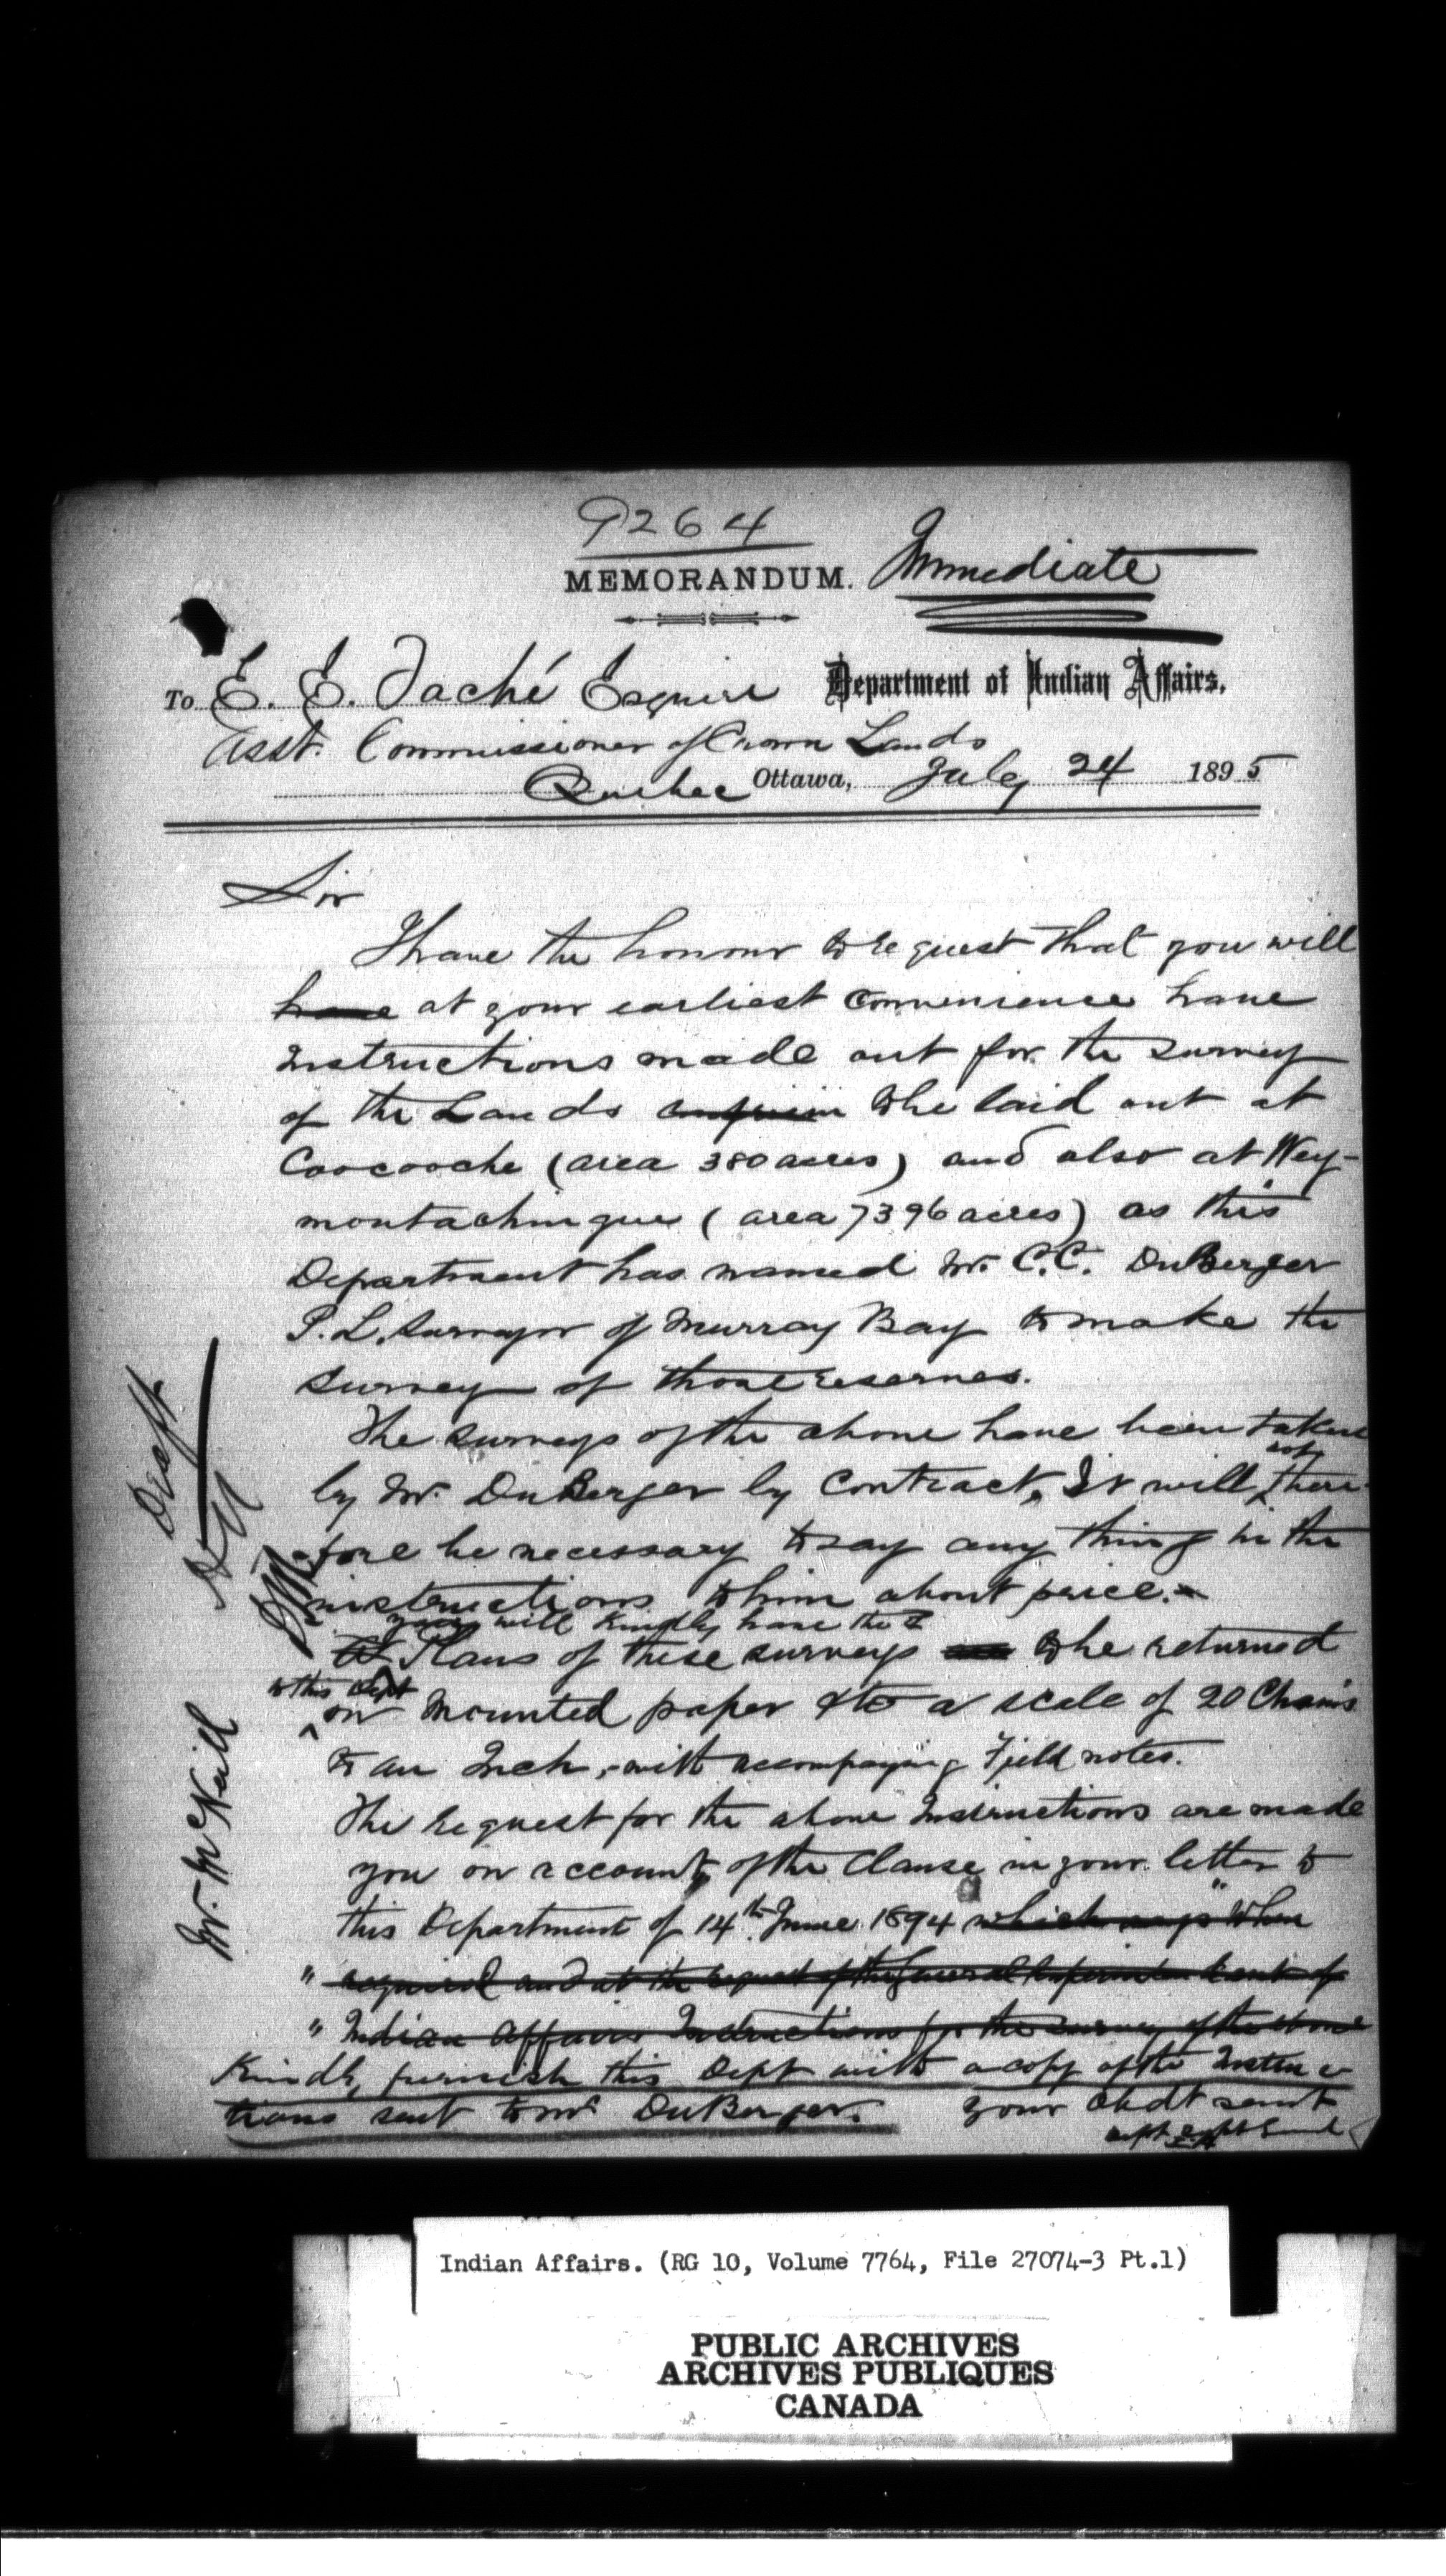 9264
MEMORANDUM. Immediate
To E. E. Taché Esquire Department of Indian Affairs.
Asst. Commissioner of Crown Lands
Quebec Ottawa, July 24 1895
Sir
I have the honour to request that you will
have at your earliest convenience have
instructions made out for the survey
of the Lands to be laid out at
Coocooche (area 380 acres) and also at Wey-
montachingue (area 7396 acres) as this
Department has named Mr. C. C. DuBerger
P. L. Surveyor of Murray Bay to make the
survey of those reserves.
The surveys of the above have been taken
by Mr. DuBerger by Contract, It will not there-
fore be necessary to say any thing in the
instructions to him about price.
you will kindly have the
Plans of these surveys to be returned
to this Dept
on mounted paper & to a scale of 20 Chains
to an Inch, with accompaying Field notes.
The request for the above Instructions are made
you on account of the Clause in your letter to
this Department of 14th June 1894 which says "When
" required and at the request of the General Superintendent of
" Indian Affairs Instructions for the survey of the above
Kindly furnish this Dept with a copy of the Instruc-
tions sent to Mr DuBerger. Your Obdt servt
Draft
Mr. McNeill
Indian Affairs. (RG 10, Volume 7764, File 27074-3 Pt.1)
PUBLIC ARCHIVES
ARCHIVES PUBLIQUES
CANADA